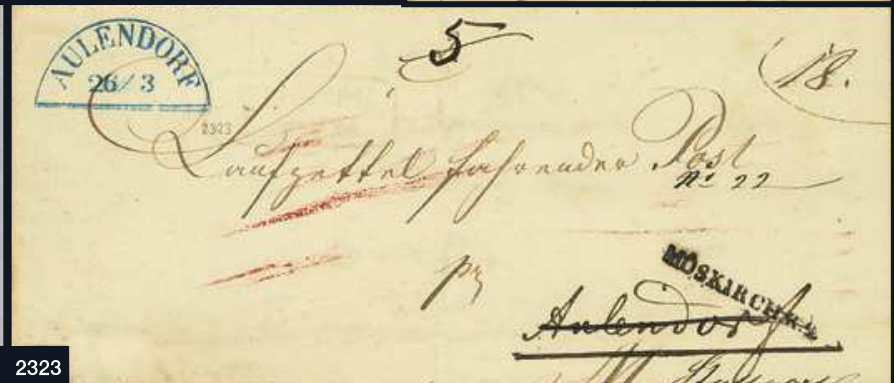 5
AULENDORF
26/3
18.
2323
Laufzettel fahrender Post
No 22
pr
MÖSKIRCH R.4
Aulendorf
2323